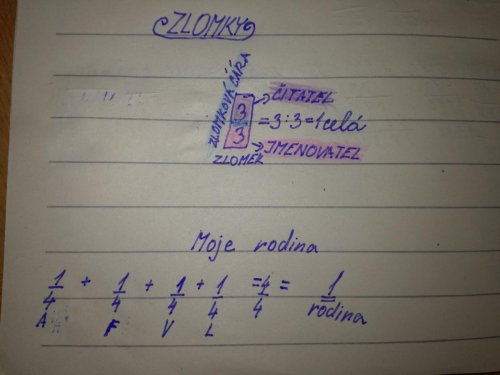 ZLOMKY
ZLOMKOVÁ ČÁRA
ČITATEL
3
3
=3:3=1 celá
JMENOVATEL
ZLOMEK
Moje rodina
1/4 + 1/4 + 1/4 + 1/4 = 4/4 = 1 rodina
A F V L